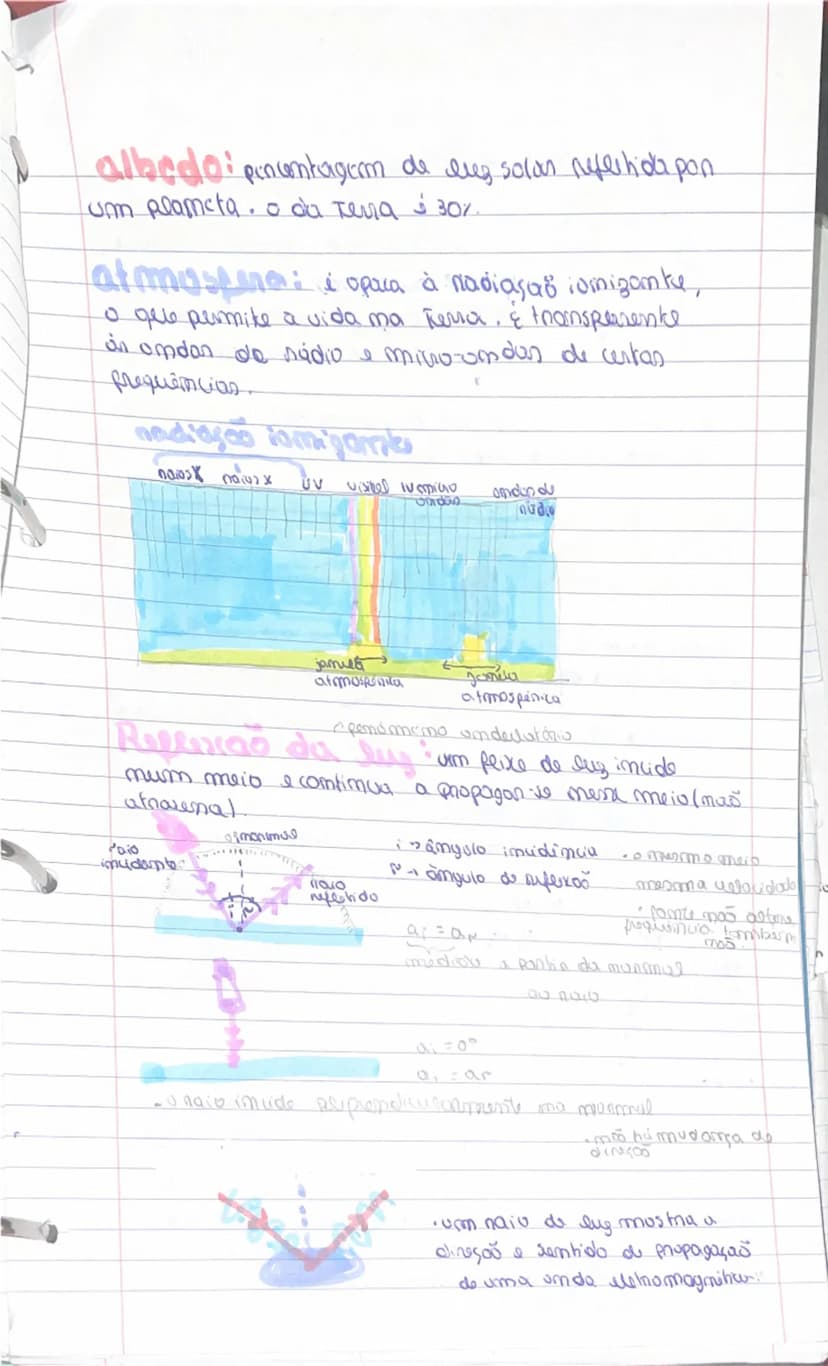 albedo: percentagem de luz solar refletida por
um planeta. o da Terra é 30%.
atmosfera: é opaca à radiação ionizante,
o que permite a vida na Terra. É transparente
às ondas de rádio e micro-ondas de certas
frequências.
radiação ionizante
raios X raios x UV visível IV micro ondas ondas de rádio
janela atmosférica
janela atmosférica
fenómeno ondulatório
Reflexão da luz: um feixe de luz incide
num meio e continua a propagar-se nesse meio (não
atravessa).
raio incidente
normal
raio refletido
i → ângulo incidência
r → ângulo de reflexão
• o mesmo meio
mesma velocidade
• fonte não altera
frequência também
não.
ai = ar
medidos a partir da normal
ao raio
ai = 0°
ai = ar
- o raio incide perpendicularmente na normal
• não há mudança de
direção
• um raio de luz mostra a
direção e sentido de propagação
de uma onda eletromagnética.